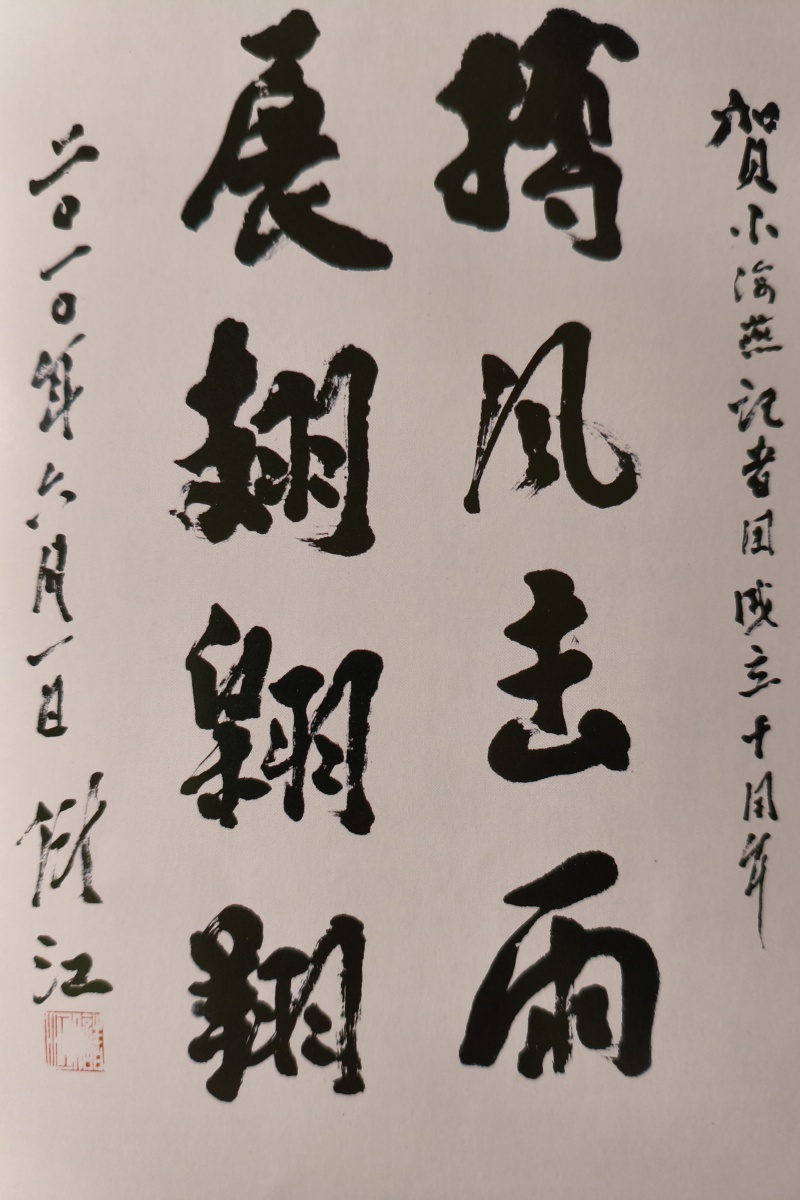 贺小海燕记者团成立十周年
搏风击雨
展翅翱翔
二〇一〇年六月一日 储江